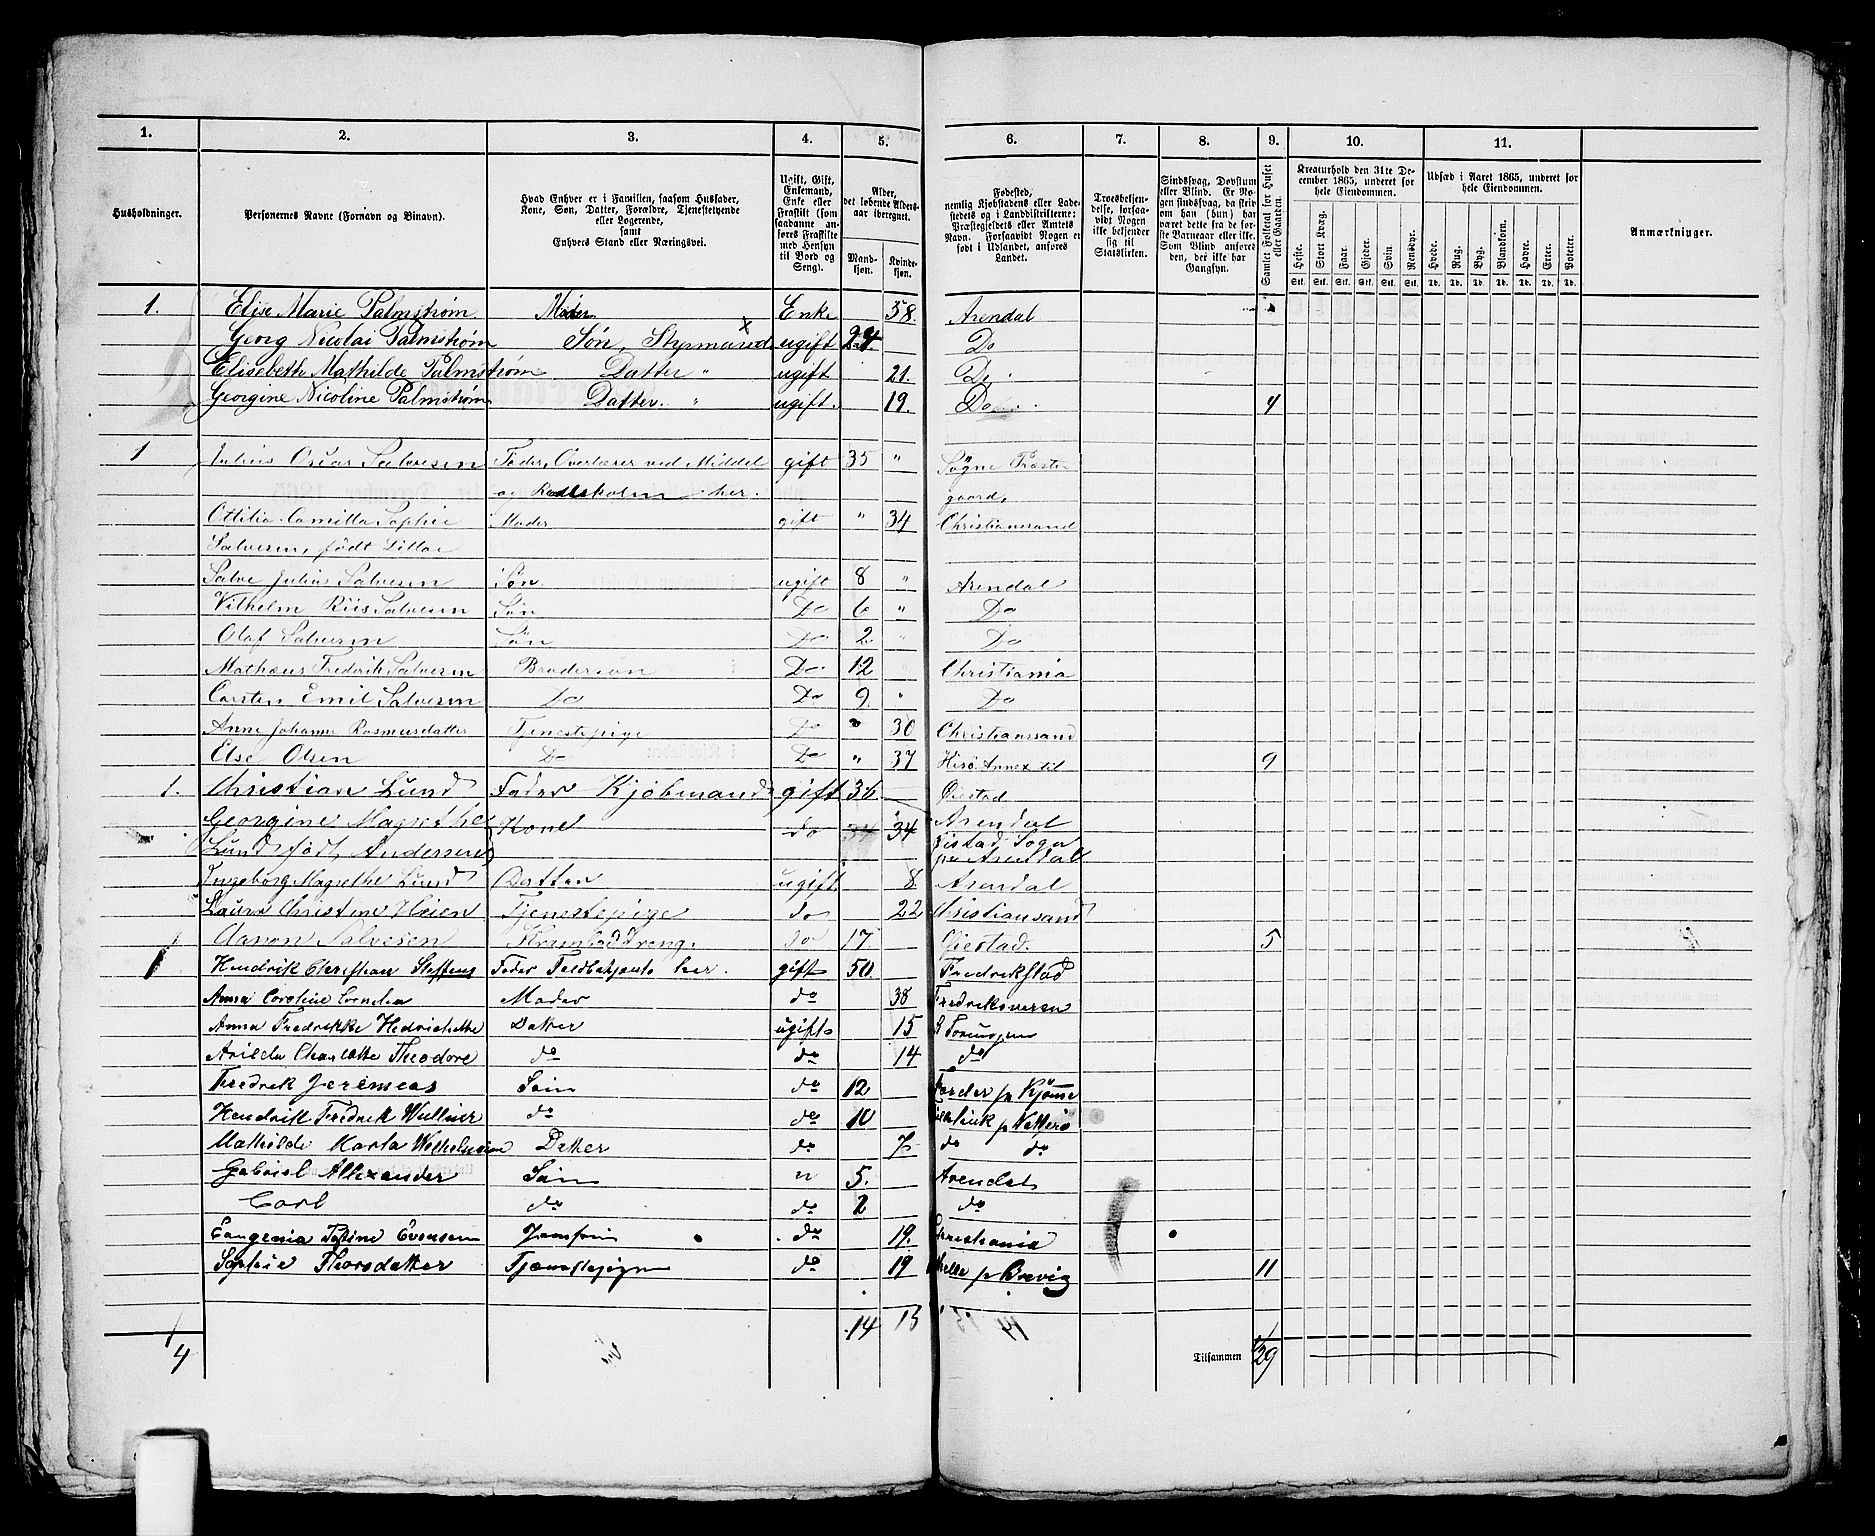 1. 2. 3. 4. 5. 6. 7. 8. 9. 10. 11.
Husholdninger.
Personernes Navne (Fornavn og Binavn).
Hvad Enhver er i Familien, saasom Husfader, Kone, Søn, Datter, Forældre, Tjenestetyende eller Logerende, samt Enhvers Stand eller Næringsvei.
Ugift, Gift, Enkemand, Enke eller Fraskilt (som saadanne anføres Fraskilte med Hensyn til Bord og Seng).
Alder, det løbende Alders-aar iberegnet.
Mand-kjøn. Kvinde-kjøn.
Fødested, nemlig Kjøbstadens eller Ladestedets og i Landdistrikterne: Præstegjeldets eller Amtets Navn. Forsaavidt Nogen er født i Udlandet, anføres Landet.
Troesbekjendelse, forsaavidt Nogen ikke bekjender sig til Statskirken.
Sindssvag, Døvstum eller Blind. Er Nogen sindssvag, da skrives om han (hun) har været dette fra de første Barneaar eller ikke. Som Blind anføres den, der ikke har Gangsyn.
Samlet Folketal for Huset eller Gaarden.
Kreaturhold den 31te December 1865, underet for hele Eiendommen.
Heste. Stort Kvæg. Faar. Gjeder. Svin Rensdyr.
Stk. Stk. Stk. Stk. Stk. Stk.
Udsæd i Aaret 1865, underet for hele Eiendommen.
Hvede. Rug. Byg. Blandkorn. Havre. Erter. Poteter.
Td. Td. Td. Td. Td. Td. Td.
Anmærkninger.
1. Elise Marie Palmstrøm Moder Enke 58. Arendal
Georg Nicolai Palmstrøm Søn, Styrmand × ugift 24. Do
Elisebeth Mathilde Palmstrøm Datter " ugift 21. Do.
Georgine Nicoline Palmstrøm Datter. " ugift. 19. Do. 4
1 Julius Oscar Salvesen Fader, Overlærer ved Middel gift 35 " Søgne Præste
og Realskolen her. gaard,
Ottilia Camilla Sophie Moder gift " 34 Christianssand
Salvesen, født Lilloe
Salve Julius Salvesen Søn ugift 8 " Arendal
Vilhelm Riis Salvesen Søn Do 6 " Do
Olaf Salvesen Søn Do 2 " Do
Mathæus Fredrik Salvesen Brodersøn Do 12 " Christiania
Carsten Emil Salvesen Do Do 9. " Do
Anne Johanne Rasmusdatter Tjenestepige Do " 30 Christianssand
Else Olsen Do Do " 37 Hisö Annex til 9
1. Christian Lund Fader Kjøbmand gift 36. Øiestad
Georgine Magrethe Kone do 34 34 Arendal
Lund født Andersen Øiestad Sogn pr Arendal
Ingeborg Magrethe Lund Datter ugift 8 Arendal
Laura Christine Heien Tjenestepige do 22 Christiansand
Aanon Salvesen Kramboddreng. do 17. Øiestad. 5
1 Hendrik Christian Steffens Fader Toldbetjent her. gift 50. Fredrikstad
Anna Caroline Cornelia Moder do 38 Fredriksværn
Anna Fredrikke Hedrichette Datter ugift 15
Charlotte Theodore do do 14 do
Fredrik Jeremeas Søn do 12 Færder pr Kjømse
Hendrik Fredrik do do 10
Mathilde Karla Datter do 7 do do
Gabriel Allexander Søn " 5. Arendal
Carl do do 2 do
Eougenia Evensen Jomfru do 19. Christiania
Sophie Thorsdatter do 19 pr Brevig 11
14 15
4
Tilsammen 29